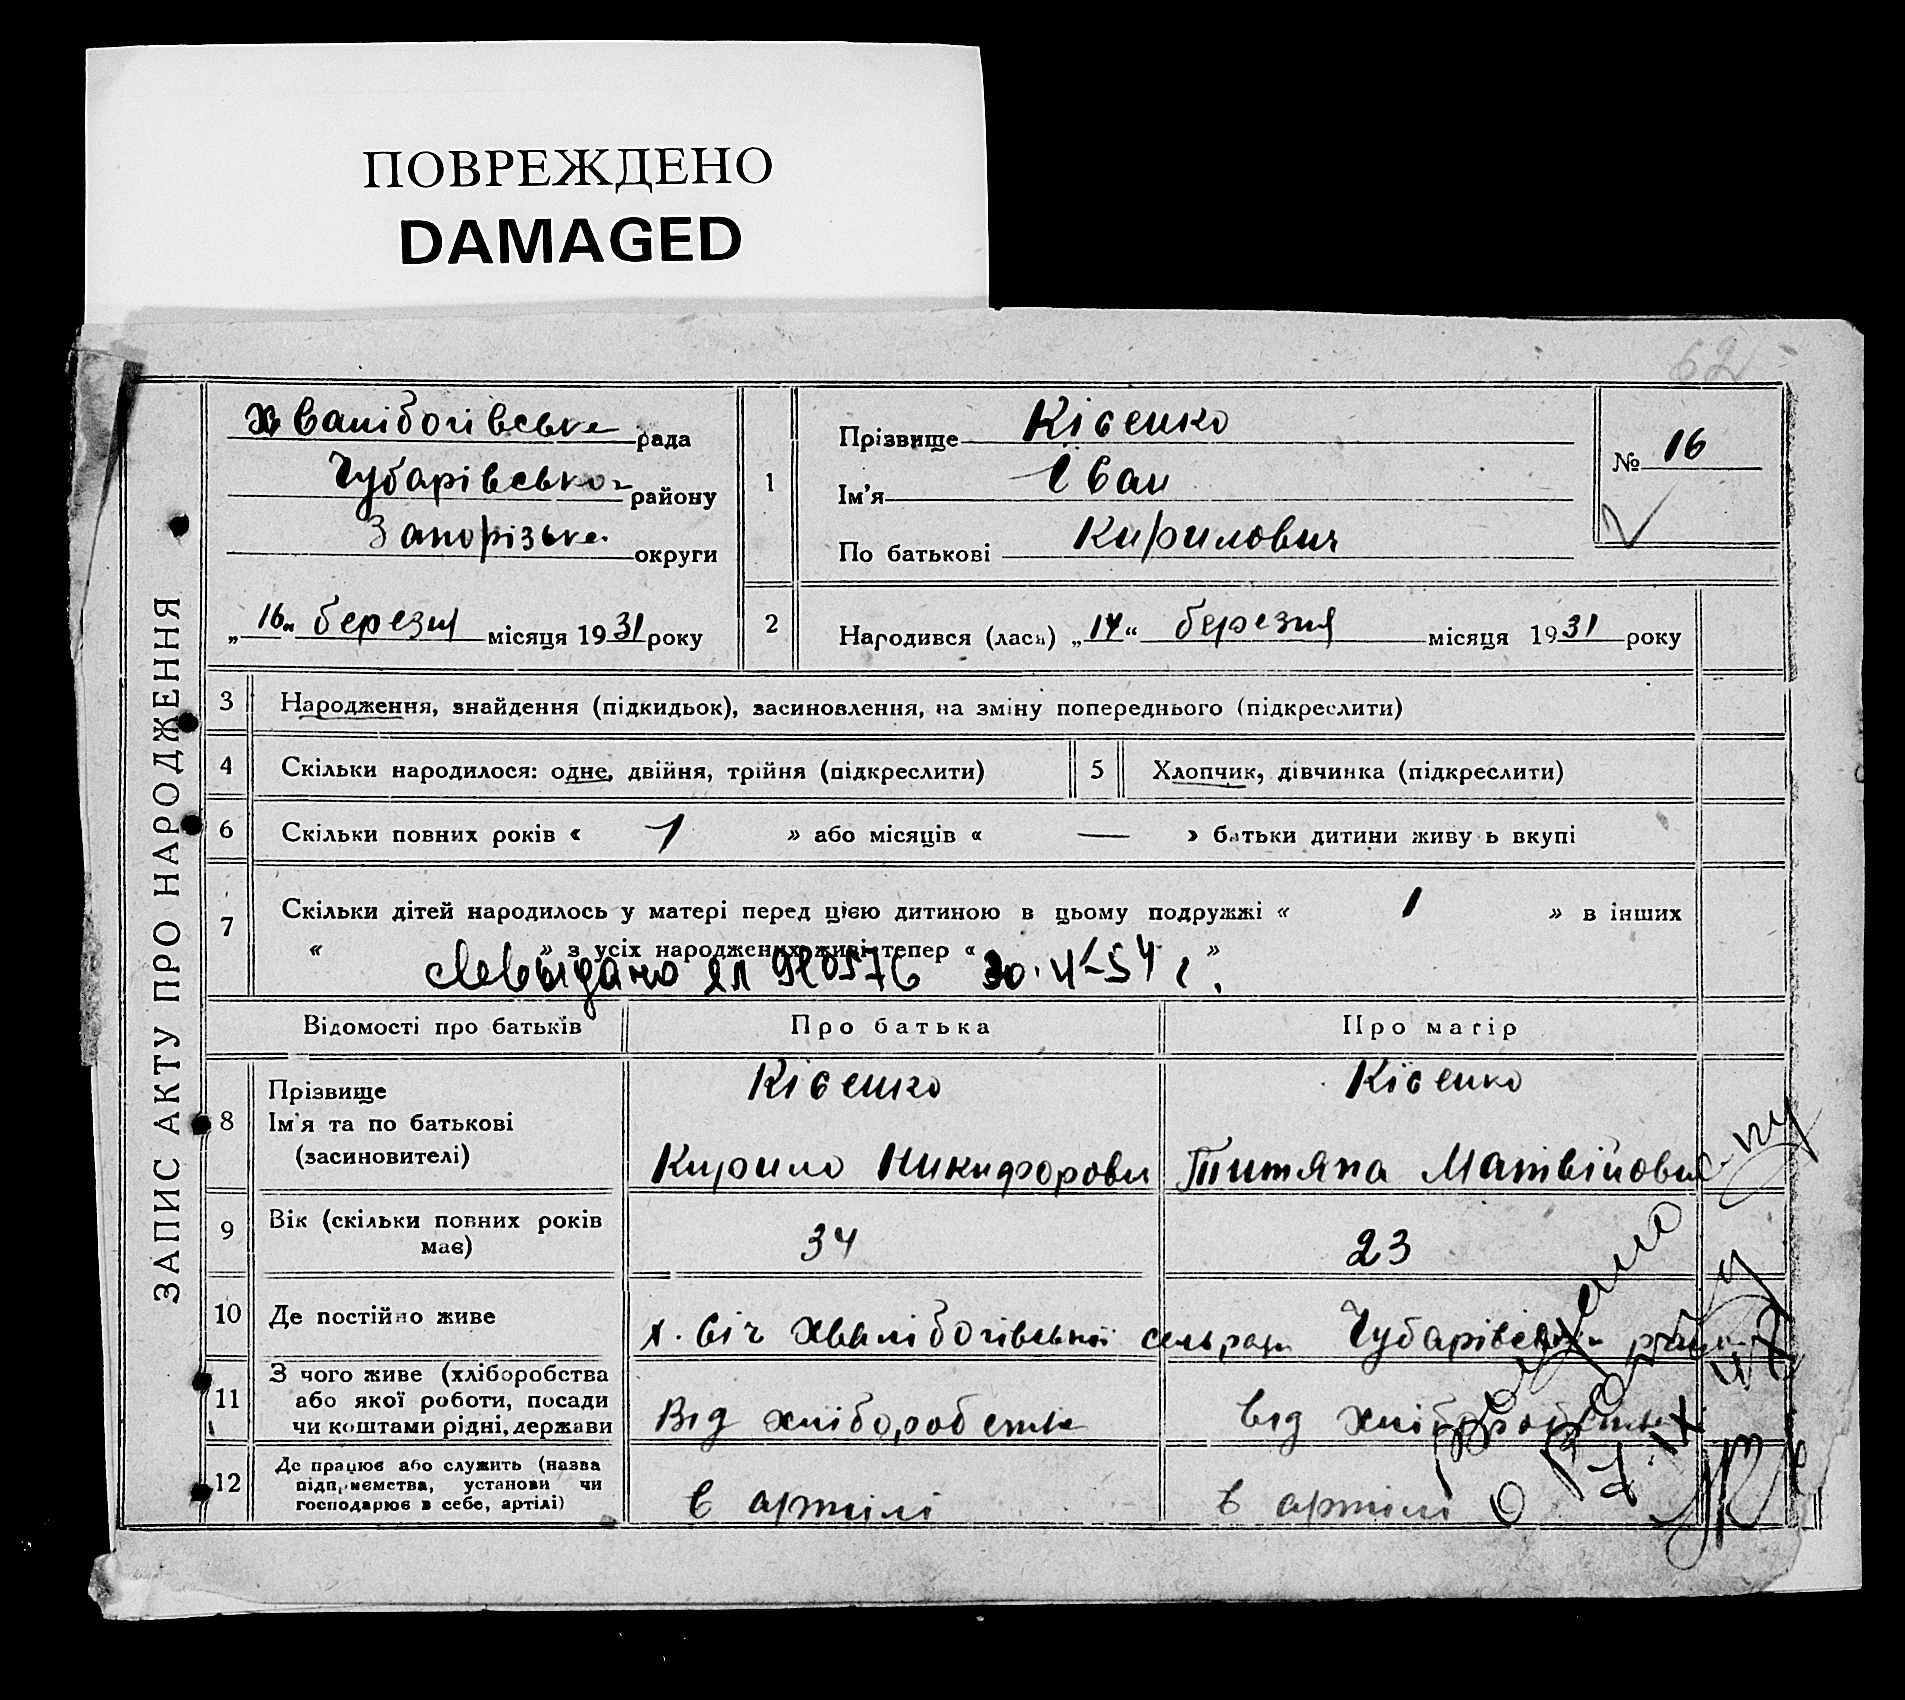 ПОВРЕЖДЕНО
DAMAGED
62
ЗАПИС АКТУ ПРО НАРОДЖЕННЯ
Хвалібогівська рада
Чубарівського району
Запорізька округи
„16“ березня місяця 1931 року
1
Прізвище Кієенко
Ім'я Іван
По батькові Кирилович
№ 16
2
Народився (лася) „14“ березня місяця 1931 року
3 Народження, знайдення (підкидьок), засиновлення, на зміну попереднього (підкреслити)
4 Скільки народилося: одне, двійня, трійня (підкреслити)
5 Хлопчик, дівчинка (підкреслити)
6 Скільки повних років « 1 » або місяців « — » батьки дитини живу ь вкупі
7 Скільки дітей народилось у матері перед цією дитиною в цьому подружжі « 1 » в інших
« » з усіх народжених живі тепер « »
30.
Відомості про батьків Про батька Про матір
8 Прізвище
Ім'я та по батькові
(засиновителі)
Кієенко
Кирило Никифорови
Кієенко
Титяна Матвійовна
9 Вік (скільки повних років
має)
34 23
10 Де постійно живе
х. Січ Хвалібогівської сельради Чубарівськ
11 З чого живе (хліборобства
або якої роботи, посади
чи коштами рідні, держави
Від хліборобства від хліборобства
12 Де працює або служить (назва
підприємства, установи чи
господарює в себе, артілі)
в артілі в артілі